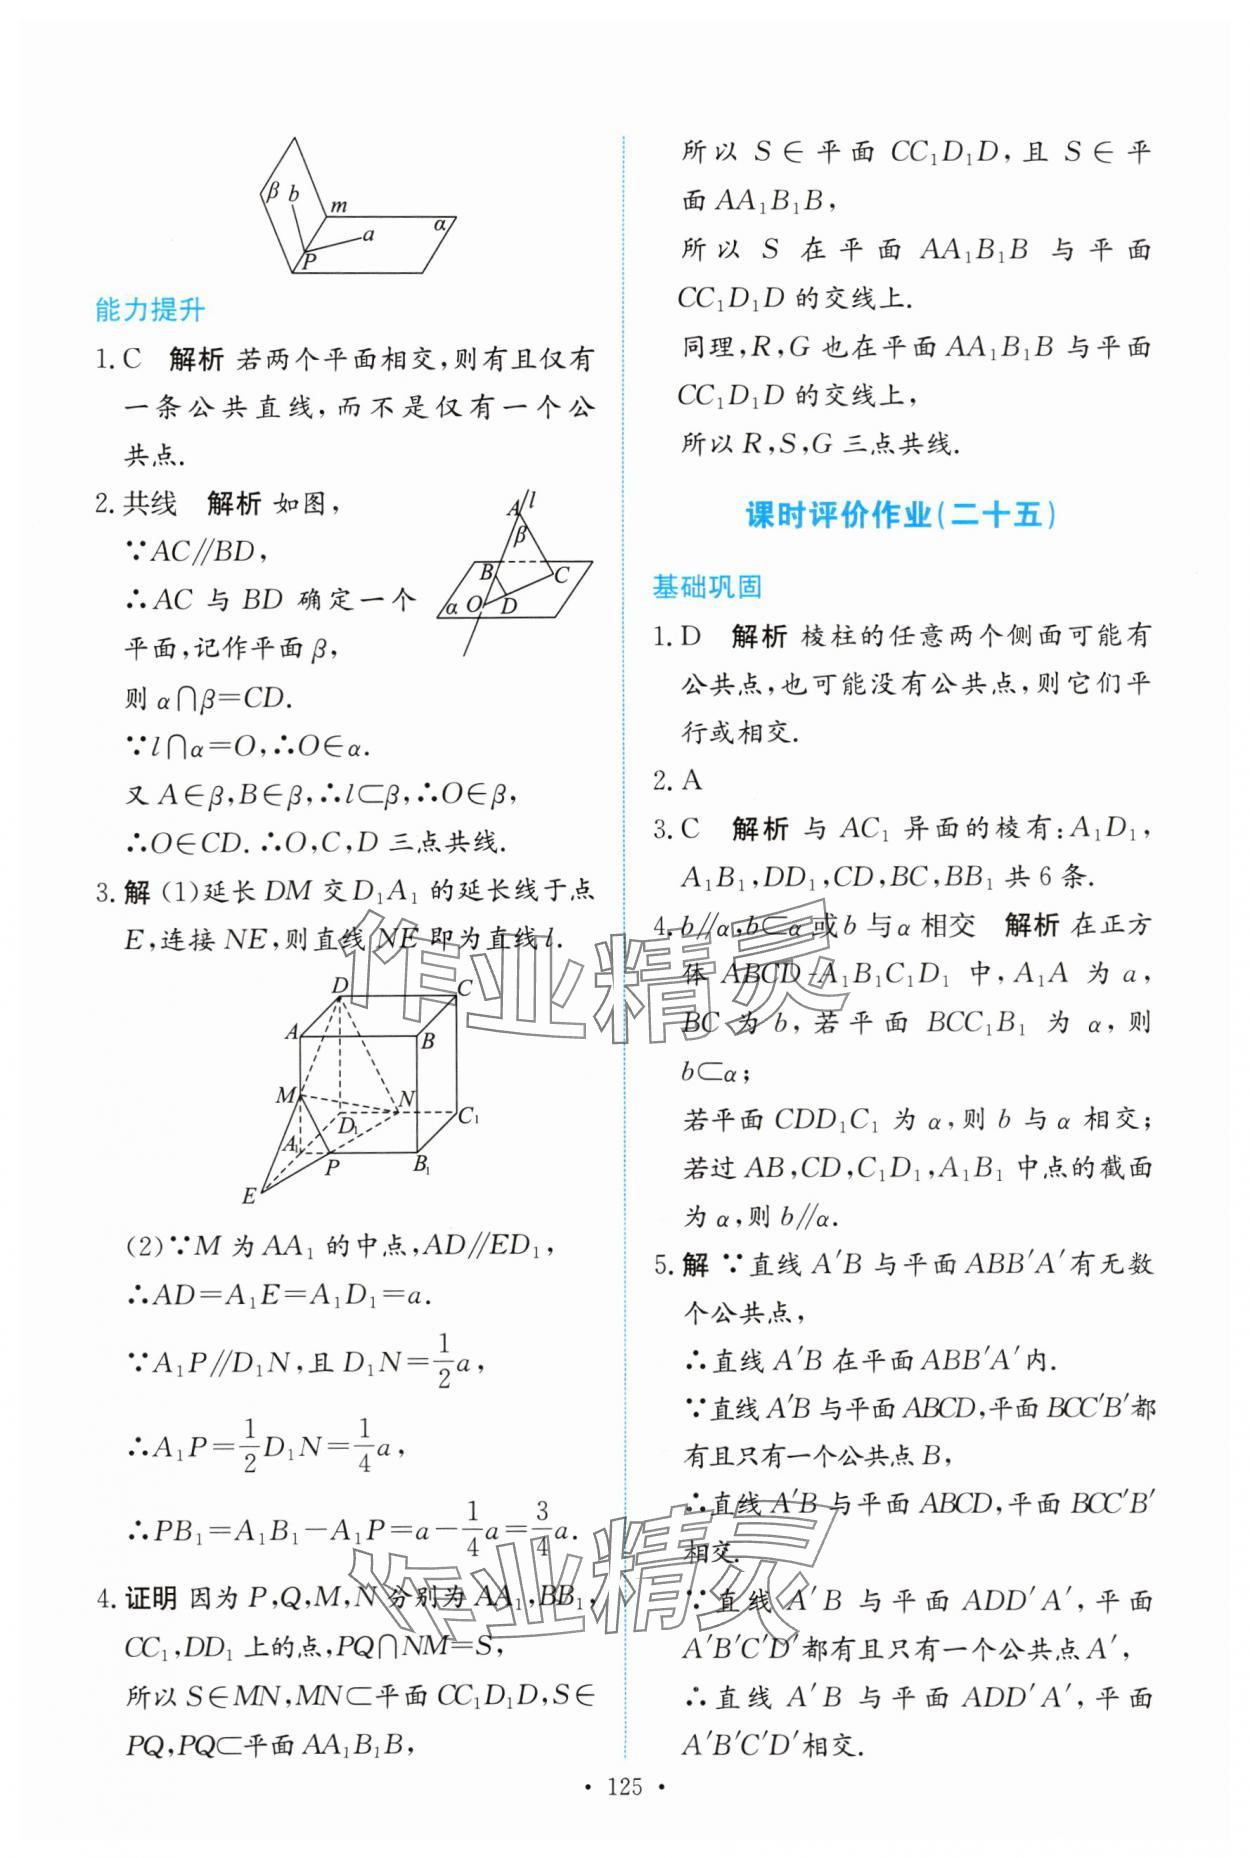 β b m a α P
能力提升
1. C 解析 若两个平面相交,则有且仅有
一条公共直线,而不是仅有一个公
共点.
2. 共线 解析 如图,
∵AC∥BD,
∴AC 与 BD 确定一个
平面,记作平面 β,
则 α∩β=CD.
∵l∩α=O,∴O∈α.
又 A∈β,B∈β,∴l⊂β,∴O∈β,
∴O∈CD.∴O,C,D 三点共线.
A l β B C α O D
3. 解 (1)延长 DM 交 D₁A₁ 的延长线于点
E,连接 NE,则直线 NE 即为直线 l.
D C A B M N D₁ C₁ A₁ P B₁ E
(2)∵M 为 AA₁ 的中点,AD∥ED₁,
∴AD=A₁E=A₁D₁=a.
∵A₁P∥D₁N,且 D₁N=1/2a,
∴A₁P=1/2D₁N=1/4a,
∴PB₁=A₁B₁-A₁P=a-1/4a=3/4a.
4. 证明 因为 P,Q,M,N 分别为 AA₁,BB₁,
CC₁,DD₁ 上的点,PQ∩NM=S,
所以 S∈MN,MN⊂平面 CC₁D₁D,S∈
PQ,PQ⊂平面 AA₁B₁B,
所以 S∈平面 CC₁D₁D,且 S∈平
面 AA₁B₁B,
所以 S 在平面 AA₁B₁B 与平面
CC₁D₁D 的交线上.
同理,R,G 也在平面 AA₁B₁B 与平面
CC₁D₁D 的交线上,
所以 R,S,G 三点共线.
课时评价作业(二十五)
基础巩固
1. D 解析 棱柱的任意两个侧面可能有
公共点,也可能没有公共点,则它们平
行或相交.
2. A
3. C 解析 与 AC₁ 异面的棱有:A₁D₁,
A₁B₁,DD₁,CD,BC,BB₁ 共 6 条.
4. b∥α,b⊂α 或 b 与 α 相交 解析 在正方
体 ABCD-A₁B₁C₁D₁ 中,A₁A 为 a,
BC 为 b,若平面 BCC₁B₁ 为 α,则
b⊂α;
若平面 CDD₁C₁ 为 α,则 b 与 α 相交;
若过 AB,CD,C₁D₁,A₁B₁ 中点的截面
为 α,则 b∥α.
5. 解 ∵直线 A′B 与平面 ABB′A′有无数
个公共点,
∴直线 A′B 在平面 ABB′A′内.
∵直线 A′B 与平面 ABCD,平面 BCC′B′都
有且只有一个公共点 B,
∴直线 A′B 与平面 ABCD,平面 BCC′B′
相交.
∵直线 A′B 与平面 ADD′A′,平面
A′B′C′D′都有且只有一个公共点 A′,
∴直线 A′B 与平面 ADD′A′,平面
A′B′C′D′相交.
作业精灵
作业精灵
• 125 •